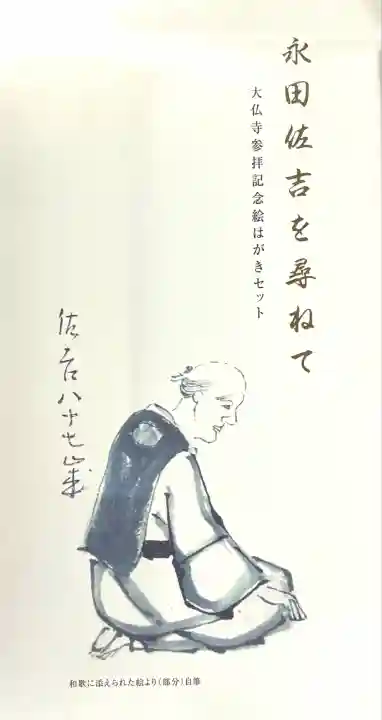 永田佐吉を尋ねて
大仏寺参拝記念絵はがきセット
佐吉八十七歳
和歌に添えられた絵より（部分）自筆